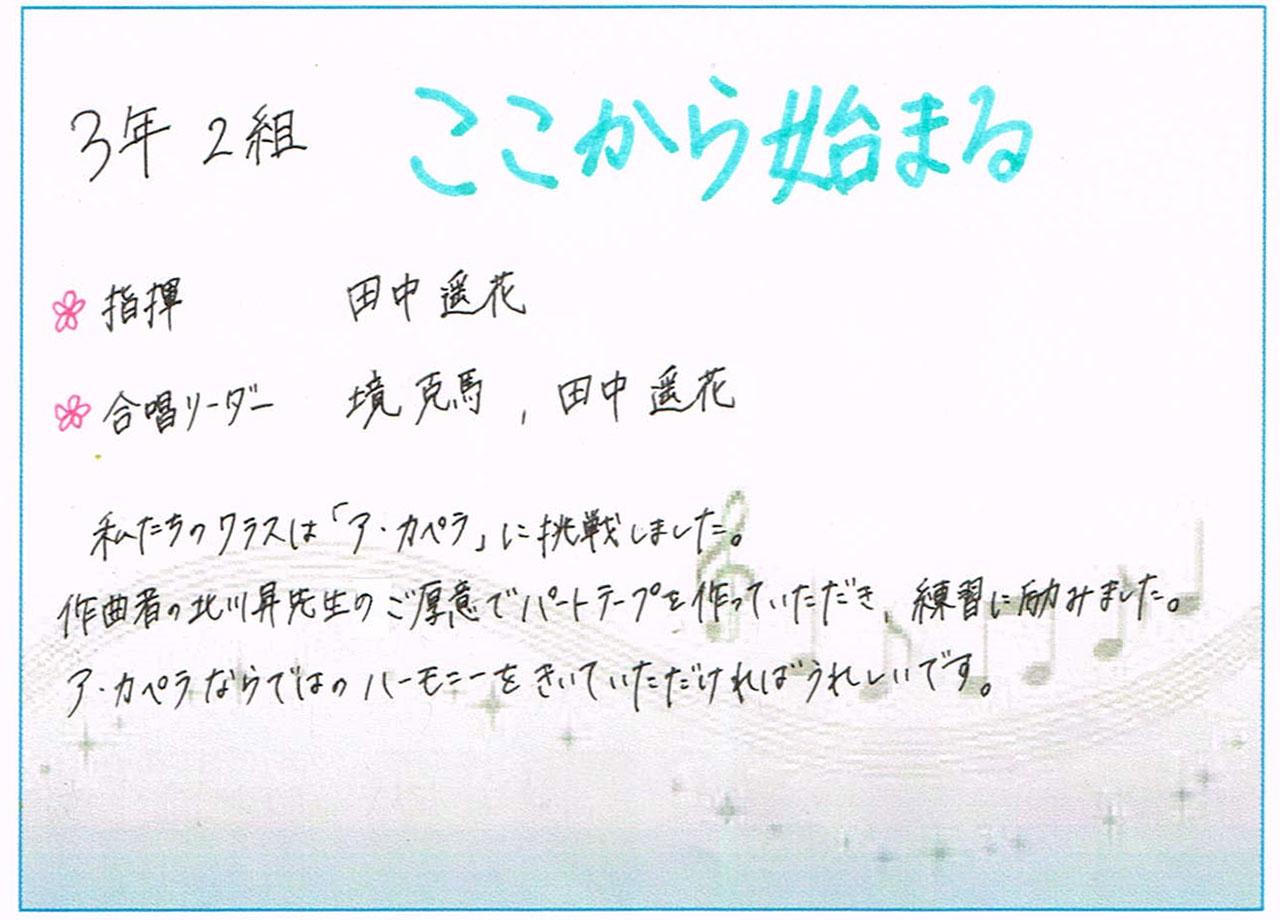 3年2組 ここから始まる
指揮 田中遥花
合唱リーダー 境克馬, 田中遥花
私たちのクラスは「ア・カペラ」に挑戦しました。
作曲者の北川昇先生のご厚意でパートテープを作っていただき、練習に励みました。
ア・カペラならではのハーモニーをきいていただければうれしいです。